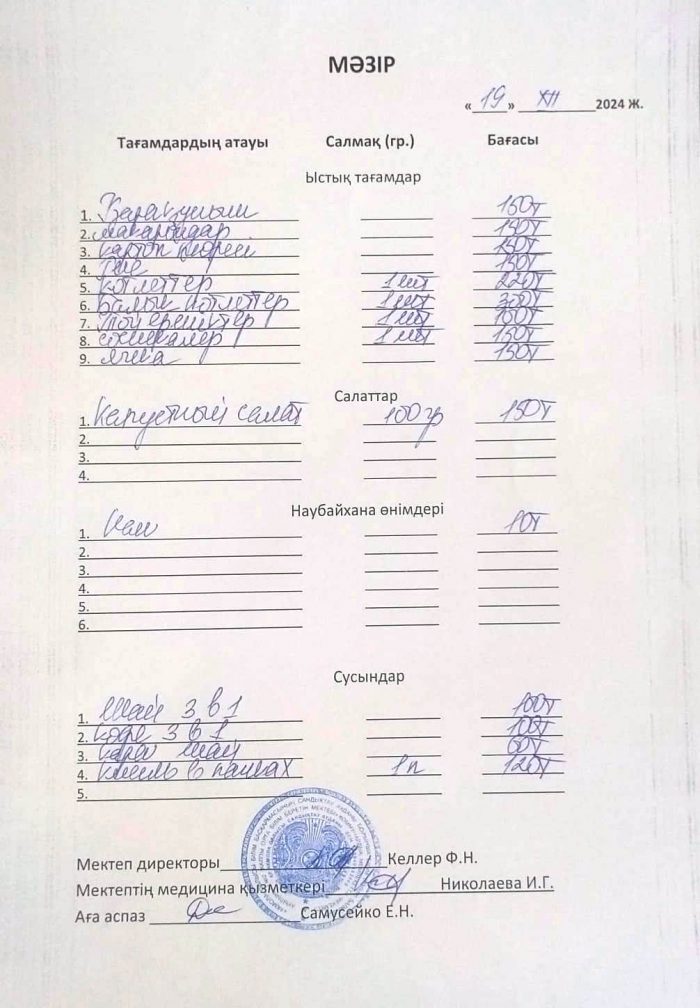 МӘЗІР
« 19 » XII 2024 Ж.
Тағамдардың атауы Салмақ (гр.) Бағасы
Ыстық тағамдар
1. Қарақұмық 150т
2. макарондар 150т
3. картоп пюреси 150т
4. 150т
5. котлеттер 1 шт 220т
6. балық котлеттер 1 шт 300т
7. 1 шт 100т
8. сосискалер 1 шт 150т
9. ячка 150т
Салаттар
1. Капустный салат 100 гр 150т
2.
3.
4.
Наубайхана өнімдері
1. Нан 10т
2.
3.
4.
5.
6.
Сусындар
1. Шай 3 в 1 100т
2. кофе 3 в 1 100т
3. қара шай 60т
4. кисель в пачках 1п 120т
5.
Мектеп директоры Келлер Ф.Н.
Мектептің медицина қызметкері Николаева И.Г.
Аға аспаз Самусейко Е.Н.